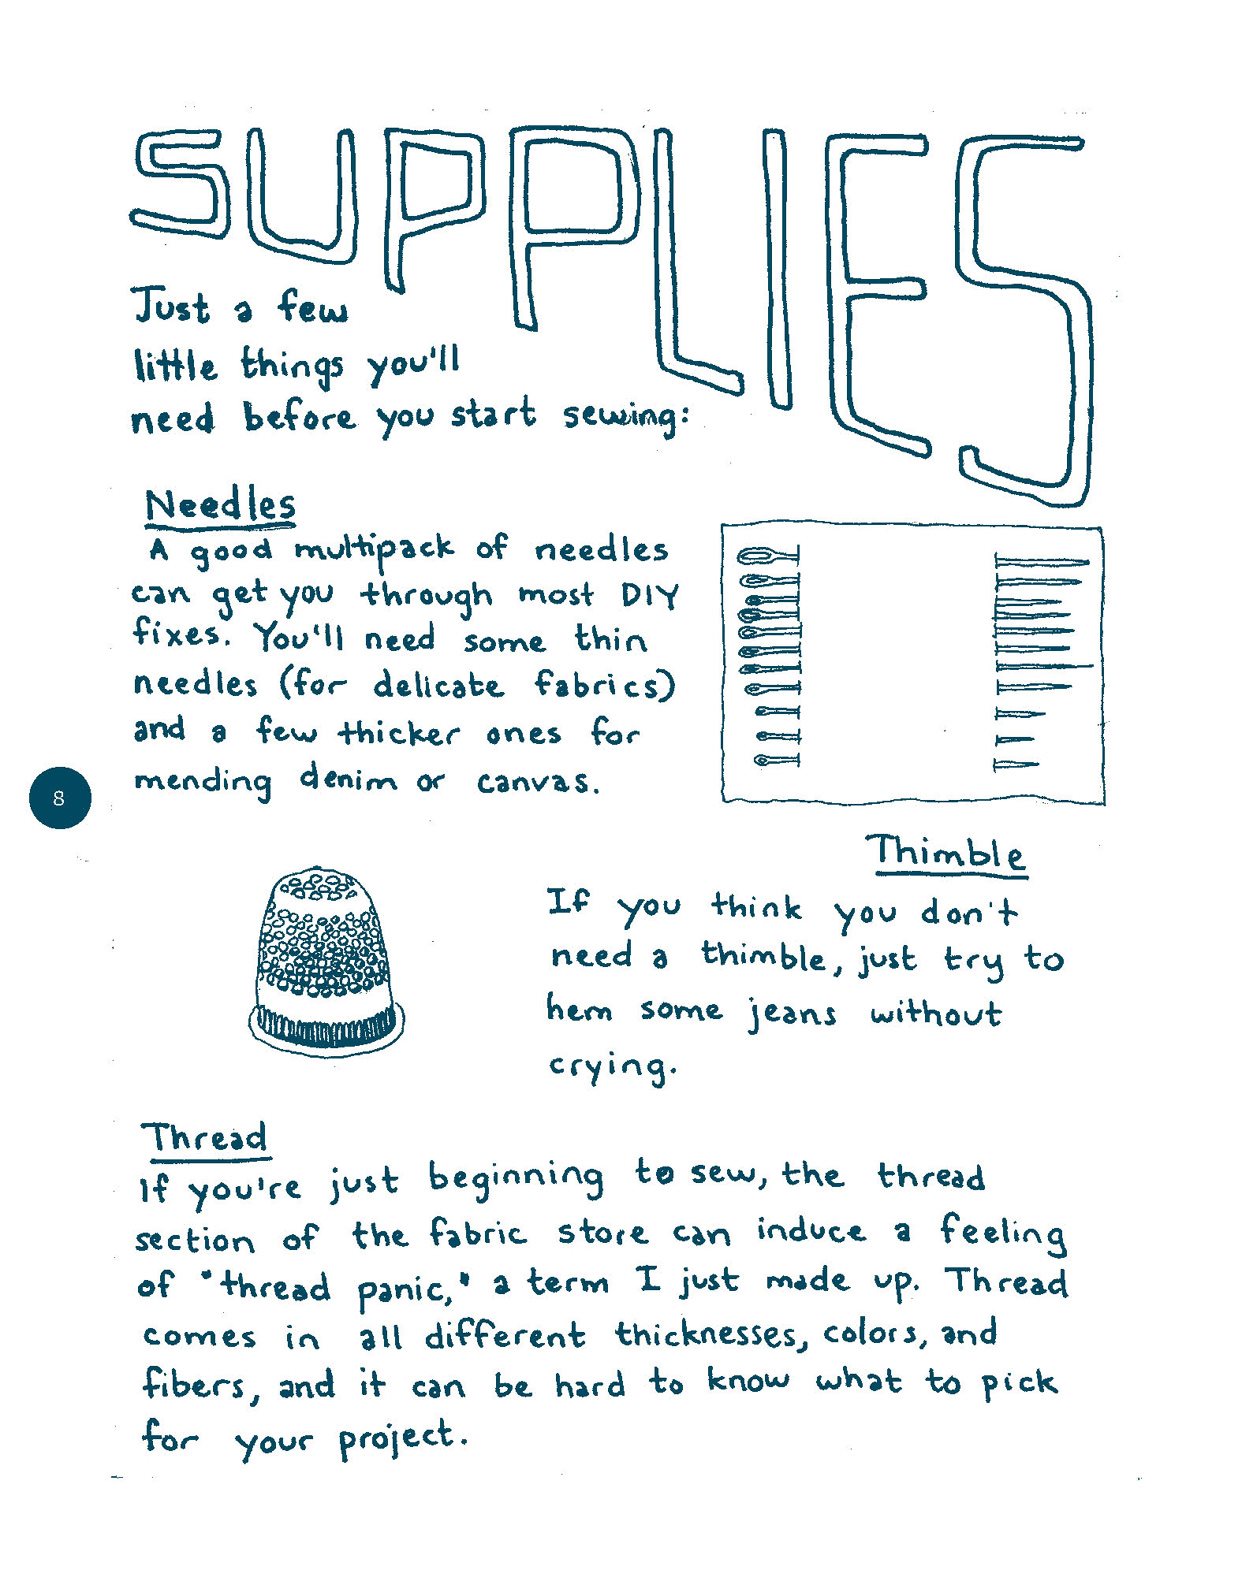 SUPPLIES
Just a few
little things you'll
need before you start sewing:
Needles
A good multipack of needles
can get you through most DIY
fixes. You'll need some thin
needles (for delicate fabrics)
and a few thicker ones for
mending denim or canvas.
8
Thimble
If you think you don't
need a thimble, just try to
hem some jeans without
crying.
Thread
If you're just beginning to sew, the thread
section of the fabric store can induce a feeling
of "thread panic," a term I just made up. Thread
comes in all different thicknesses, colors, and
fibers, and it can be hard to know what to pick
for your project.